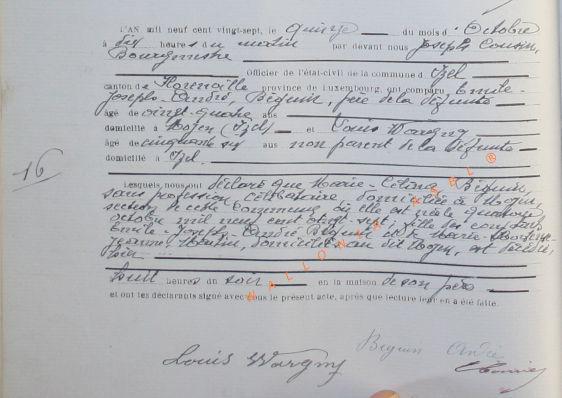 L'AN mil neuf cent vingt-sept, le quinze du mois d'Octobre
à dix heures du matin par devant nous Joseph Cousin,
Bourgmestre
Officier de l'état-civil de la commune d'Izel
canton de Florenville province de Luxembourg, ont comparu, Emile-
Joseph-André, Béguin, père de la défunte
âgé de vingt-quatre ans
domicilié à Moyen (Izel) et Louis Wargny
âgé de cinquante six ans non parent de la défunte
domicilié à Izel.
16
Lesquels nous ont déclaré que Marie-Célina Béguin,
sans profession célibataire, domiciliée à Moyen,
section de cette commune où elle est née le quatorze
octobre mil neuf cent vingt-sept; fille des conjoints
Emile-Joseph-André Béguin et de Marie-
Jeanne domiciliés au dit Moyen, est décédée,
hier
huit heures du soir en la maison de son père
et ont les déclarants signé avec nous le présent acte, après que lecture leur en a été faite.
WALLONIA
Louis Wargny
Beguin André